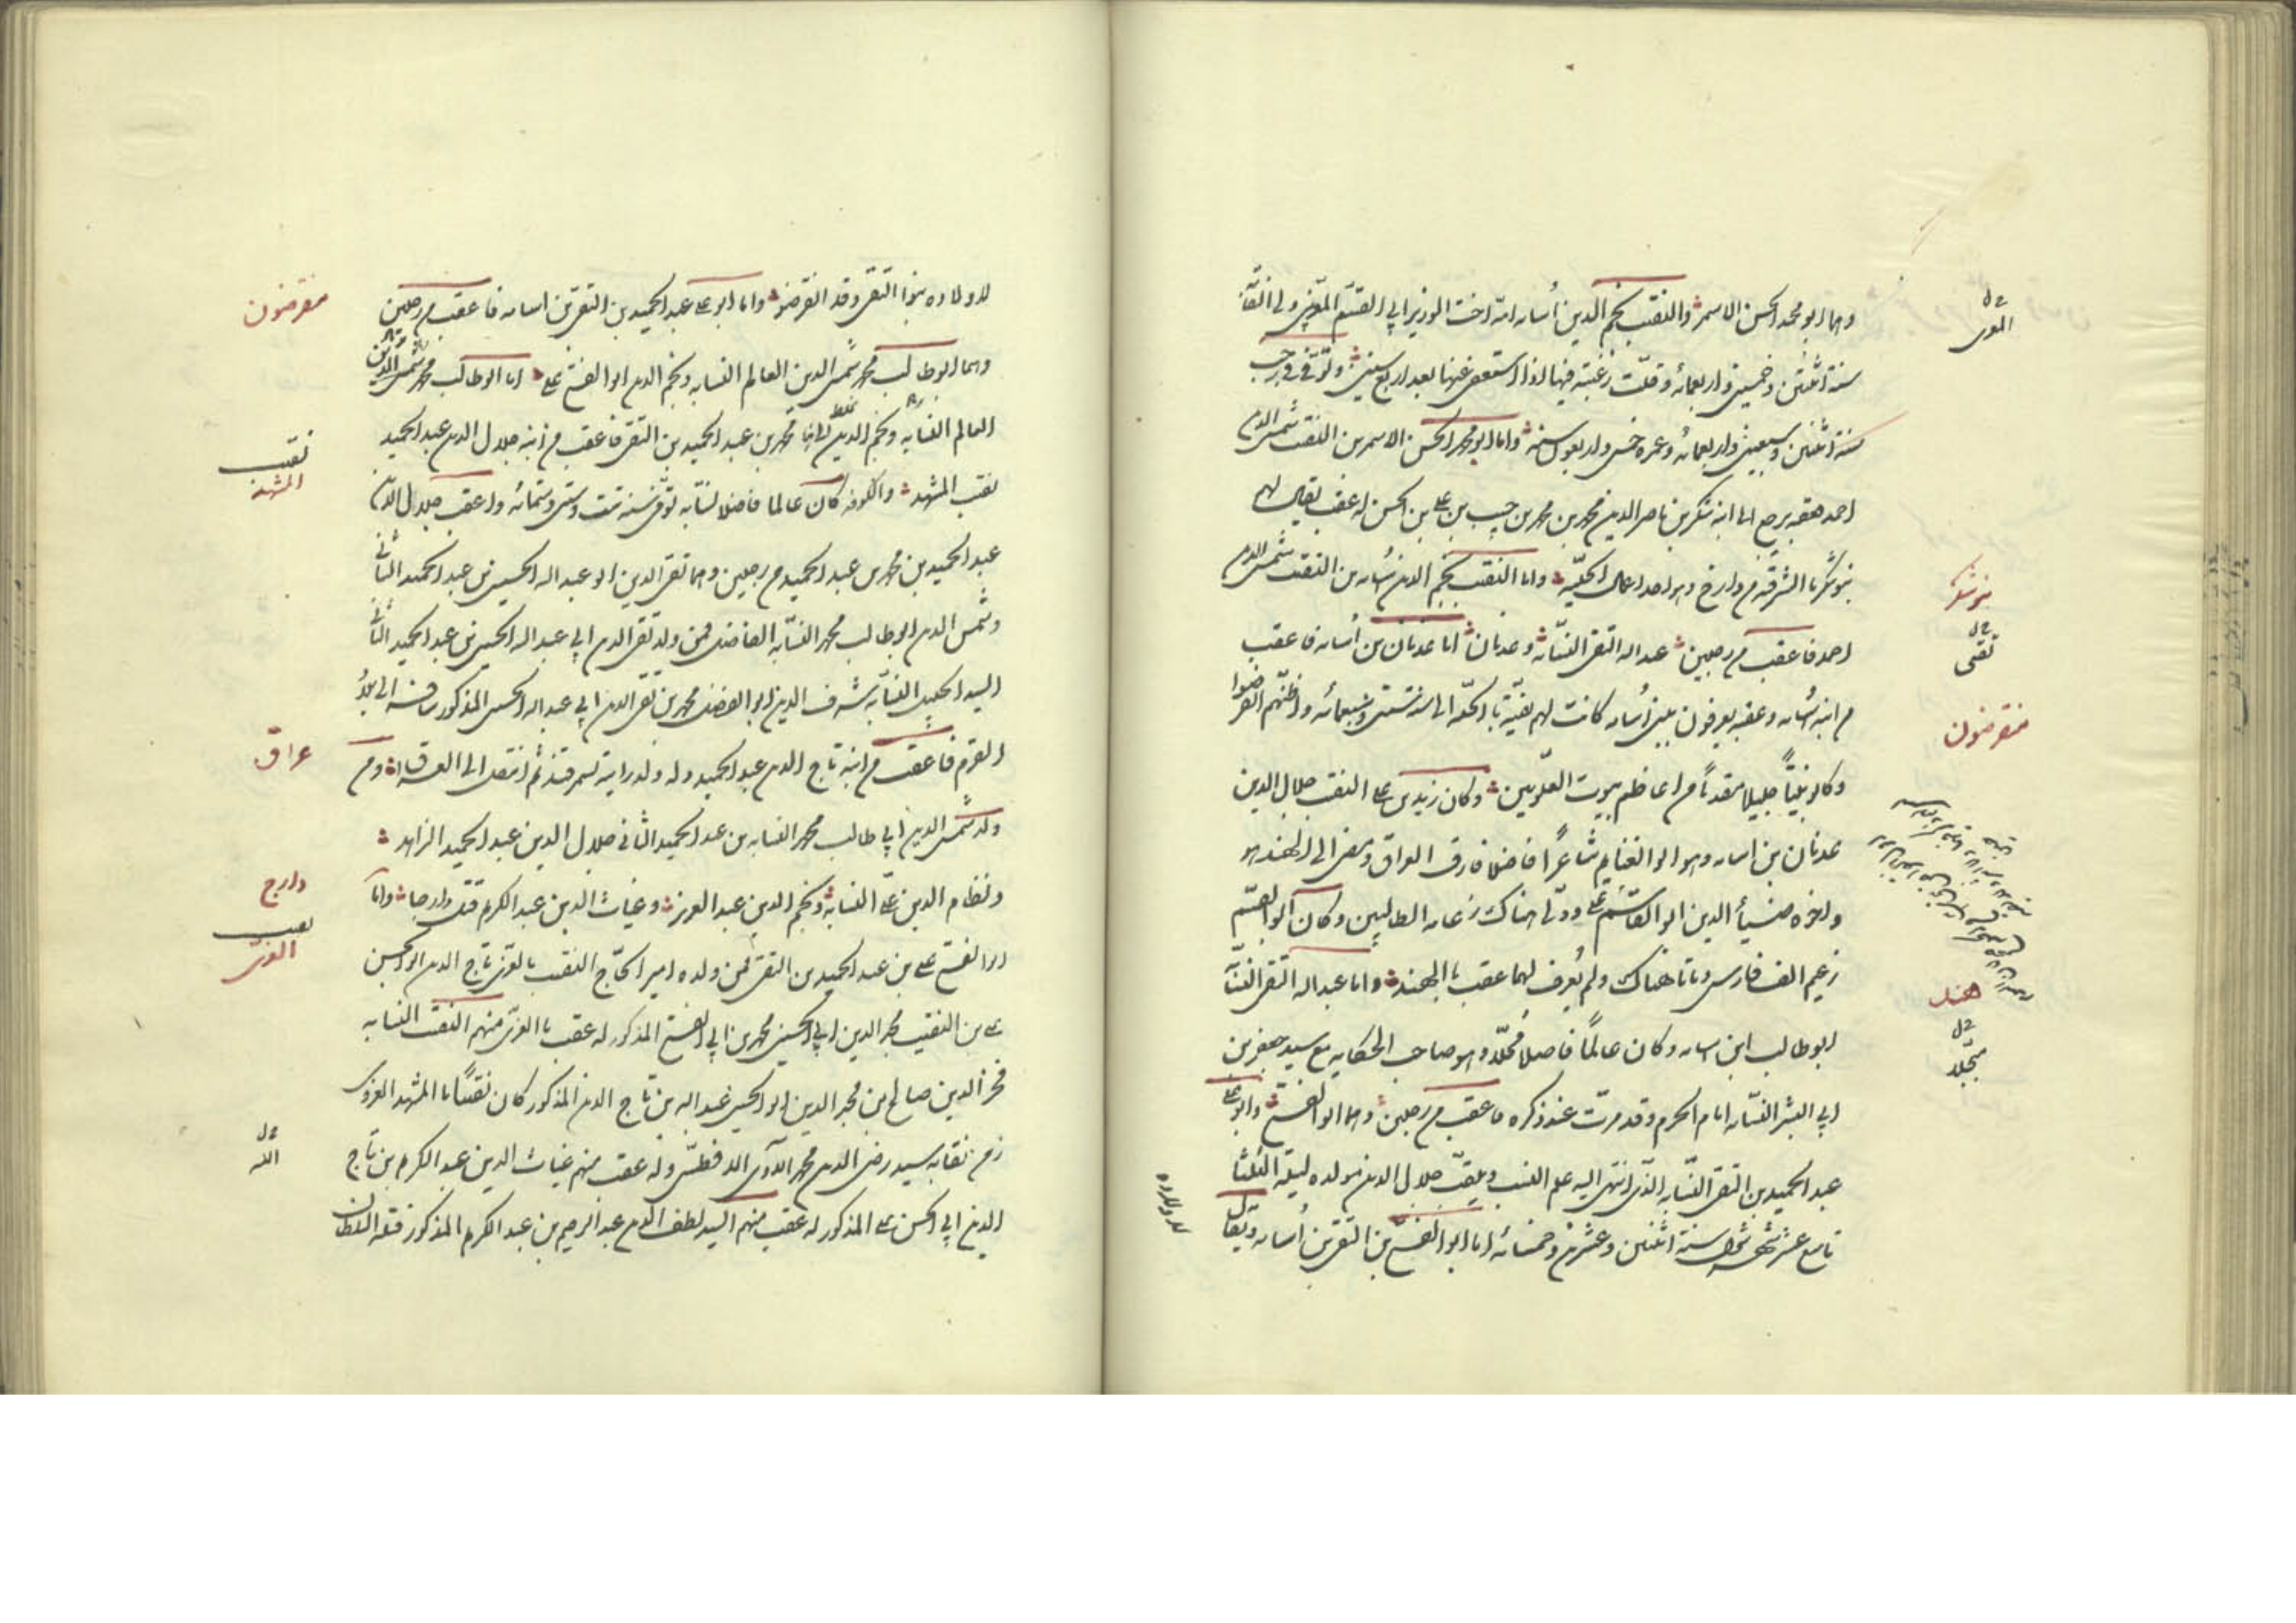 وهما ابو محمد الحسن الاسمر والنقيب نجم الدين أسامه امّه اخت الوزير ابي القسم المغربي ولي النقابة
سنة اثنتين وخمسين واربعمائه وقلّت رغبته فيها اذا استعفى عنها بعد اربع سنين وتوفّي في رجب
سنة اثنتين وسبعين واربعمائه وعمره خمس واربعون سنه واما ابو محمد الحسن الاسمر بن النقيب شمس الدين
احمد فعقبه يرجع الى ابنه شكر بن ناصر الدين محمد بن محمد بن حبيب بن على بن الحسن له عقب يقال لهم
بنو شكر با الشرفيه من دارخ وهو احد اعمال الحلّيه واما النقيب نجم الدين أسامه بن النقيب شمس الدين
احمد فاعقب من رجلين عبد اله التقى النسّابه وعدنان اما عدنان بن أسامه فاعقب
من ابنه أسامه وعقبه يعرفون ببني أسامه كانت لهم بقيّة با الحلّه الى سنة ستين وسبعمائه واظنّهم انقرضوا
وكانوا بيتاً جليلا مقدماً من اعاظم بيوت العلويين وكان زيد بن على النقيب جلال الدين
عدنان بن اسامه وهو ابو الغنايم شاعراً فاضلا فارق العراق ومضى الى الهند هو
واخوه ضياء الدين ابو القاسم علي وولّى هناك زعامه الطالبيين وكان ابو القسم
زعيم الف فارس وماتا هناك ولم يُعرف لهما عقب با الهند واما عبد اله التقى النسّا
ابو طالب ابن اسامه وكان عالمًا فاضلا محمّلا وهو صاحب الحكايه مع سيد جعفر بن
ابي البشر النسّابه امام الحرم وقد مرّت عند ذكره فاعقب من رجلين وهما ابو الفتح وابو على
عبد الحميد بن التقى النسّابه الذّى انتهى اليه علم النسب ويلقّب جلال الدين مولده ليلة الثلثا
تاسع عشر شهر شوال سنة اثنتين وعشرين وخمسمائه اما ابو الفتح بن التقى بن أسامه ويقال
لاولاده
ح ل
بنو شكر
ح ل
تقى
منقرضون
هند
ح ل
لاولاده بنوا التقى وقد انقرضو واما ابو على عبد الحميد بن التقى بن اسامه فاعقب من رجلين
وهما ابو طالب محمد شمس الدين العالم النسابه ونجم الدين ابو الفتح على اما ابو طالب محمد شمس الدين
العالم النسابه ونجم الدين محمد بن عبد الحميد بن التقى فاعقب من ابنه جلال الدين عبد الحميد
نقيب المشهد والكوفه كان عالما فاضلا نسّابه توفّى سنه ست وستين وستمائه واعقب جلال الدّين
عبد الحميد بن محمد بن عبد الحميد من رجلين وهما تقى الدين ابو عبد اله الحسين بن عبد الحميد الثاني
وشمس الدين ابو طالب محمد النسّابه الفاضل فمن ولد تقى الدين ابي عبد اله الحسين بن عبد الحميد الثاني
السيد الجليل النسّابه شرف الدين ابو الفضل محمد بن تقى الدين ابي عبد اله الحسين المذكور سافر الى بلاد
القرم فاعقب من ابنه تاج الدين عبد الحميد وله ولد رايته بسمرقند ثم انتقل الى العراق ومن
ولد شمس الدين ابي طالب محمد النسابه بن عبد الحميد الثاني جلال الدين عبد الحميد الزاهد
ونظام الدين علي النسّابه ونجم الدين عبد العزيز وغياث الدين عبد الكريم قتل دارجا واما
ابو الفتح على بن عبد الحميد بن التقى فمن ولده امير الحاج النقيب بالغرى تاج الدين ابو الحسن
على بن النقيب مجد الدين ابي الحسين محمد بن ابي الفتح المذكور له عقب با الغرى منهم النقيب النسابه
فخر الدين صالح بن مجد الدين ابو الحسين عبد اله بن تاج الدين المذكور كان نقيبًا با المشهد الغروى
زمن نقابه سيد رضى الدين محمد الآوى الافطسى وله عقب منهم غياث الدين عبد الكريم بن تاج
الدين ابي الحسن على المذكور له عقب منهم السيد لطف الدين عبد الرحيم بن عبد الكريم المذكور قتله السلطان
منقرضون
نقيب
المشهد
عراق
دارج
نقيب
الغرى
ح ل